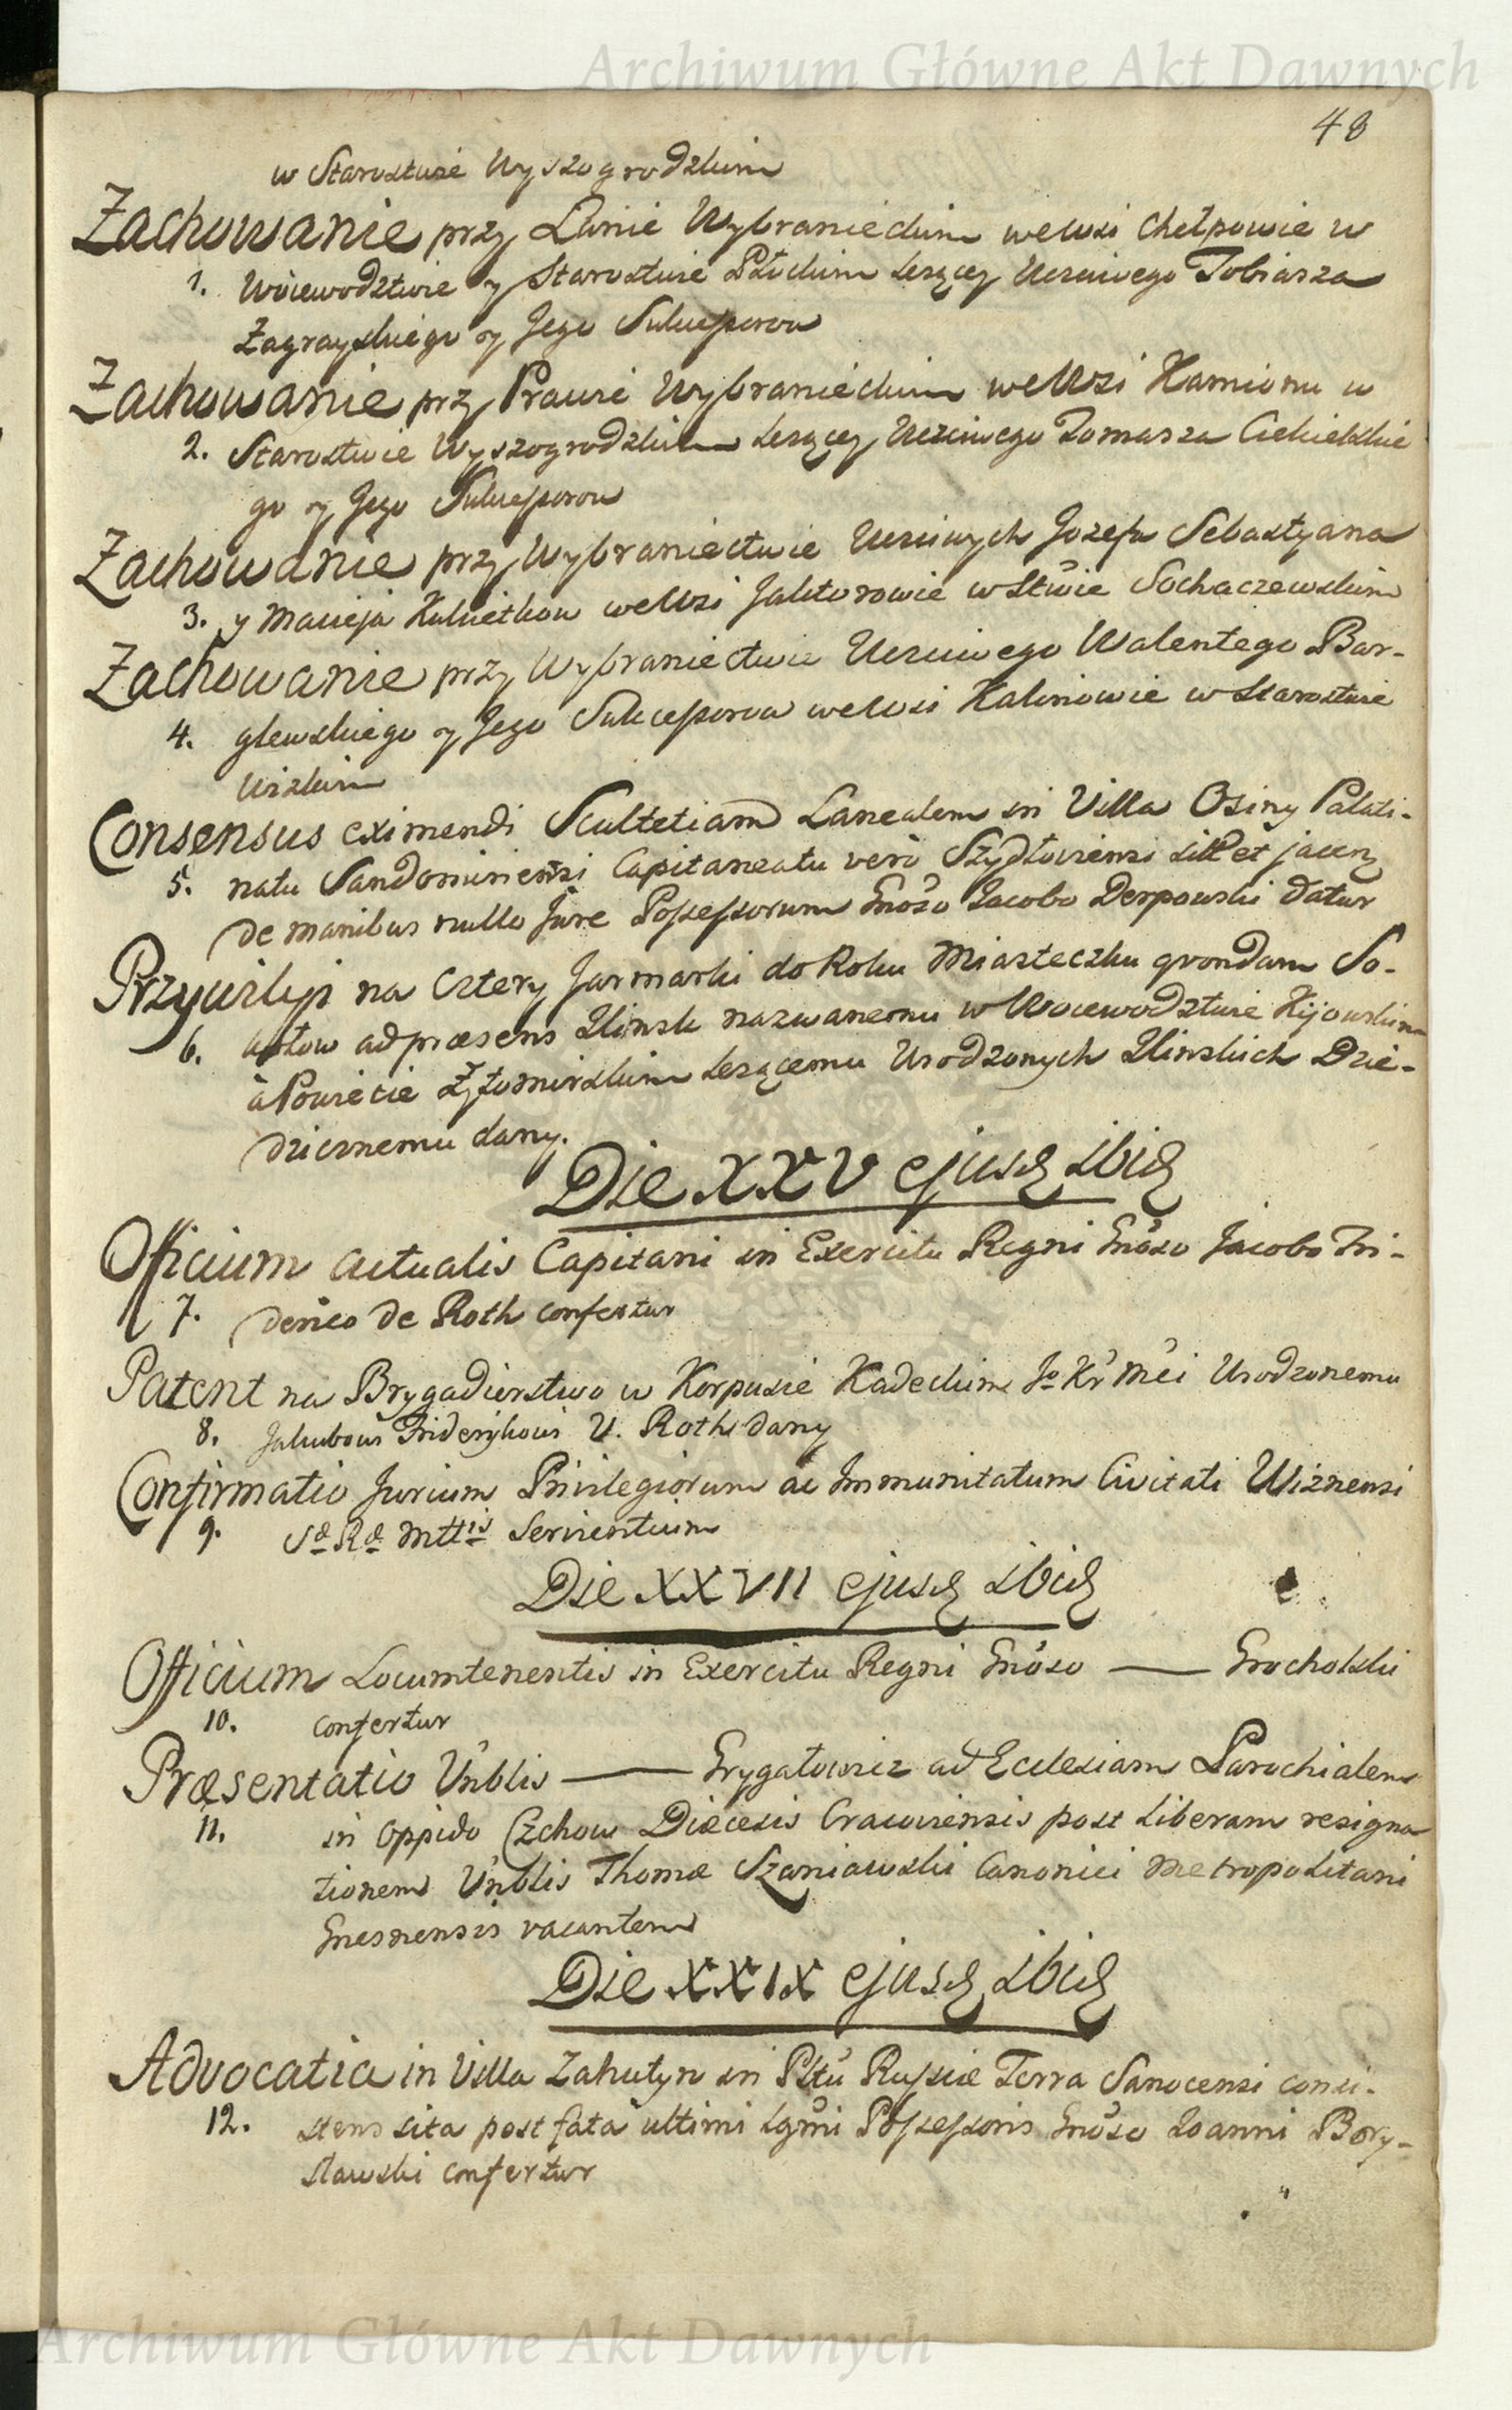 Archiwum Główne Akt Dawnych
48
w Starostwie Wyszogrodzkim
Zachowanie przy Łanie Wybranieckim wewsi Chełpowie w
1. Woiewodztwie y Starostwie Płockim Leżącey Uczciwego Tobiasza
Zagrayskiego y Jego Sukcessorow
Zachowanie przy Prawie Wybranieckim wewsi Kamionu w
2. Starostwie Wyszogrodzkim Leżącey Uczciwego Tomasza
go y Jego Sukcessorow
Zachowanie przy Wybraniectwie Uczciwych Jozefa Sebastyana
3. y Macieja wewsi Jaktorowie w Stwie Sochaczewskim
Zachowanie przy Wybraniectwie Uczciwego Walentego Bar-
4. glewskiego y Jego Sukcessorow wewsi Kalinowie w Starostwie
Wizkim
Consensus eximendi Scultetiam Lanealem in Villa Osiny Palati-
5. natu Sandomiriensi Capitaneatu vero Szydłoviensi sitt et jacen
de manibus nullo Jure Possessorum Gnoso Jacobo Derpowski datur
Przywiley na Cztery Jarmarki do Roku Miasteczku quondam So-
6. ad præsens Ilinsk nazwanemu w Woiewodztwie Kijowskim
à Powiecie Żytomirskim Leżącemu Urodzonych Ilinskich Dzie-
dzicznemu dany.
Die XXV ejusd ibid
Officium actualis Capitani in Exercitu Regni Gnoso Jacobo Fri-
7. derico de Roth confertur
Patent na Brygadierstwo w Korpusie Kadeckim Jo Kr Mci Urodzonemu
8. Jakubowi Friderykowi V. Roth dany
Confirmatio Jurium Privilegiorum ac Immunitatum Civitati Wiznensi
9. Sæ Ræ Mttis Servientium
Die XXVII ejusd ibid
Officium Locumtenentis in Exercitu Regni Gnoso — Grocholski
10. confertur
Præsentatio Vnblis — Grygałowicz ad Ecclesiam Parochialem
11. in Oppido Czchow Diæcesis Cracoviensis post Liberam resigna
tionem Vnblis Thomæ Szaniawski Canonici Metropolitani
Gnesnensis vacantem
Die XXIX ejusd ibid
Advocatia in Villa Zahutyn in Pltu Russiæ Terra Sanocensi consi-
12. stens sita post fata ultimi Lgmi Possessoris Gnoso Joanni Bory-
sławski confertur
Archiwum Główne Akt Dawnych